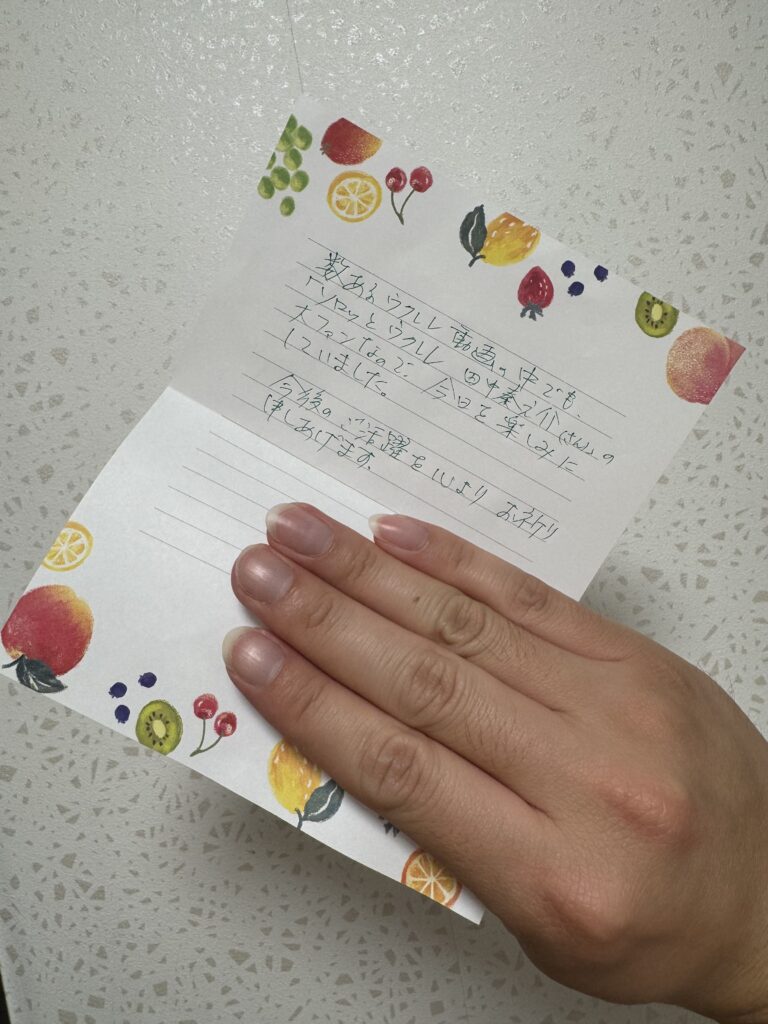 数あるウクレレ動画の中でも、
「ソロッとウクレレ 田中泰之介さん」の
大ファンなので、今日を楽しみに
していました。
今後のご活躍を心よりお祈り
申しあげます。